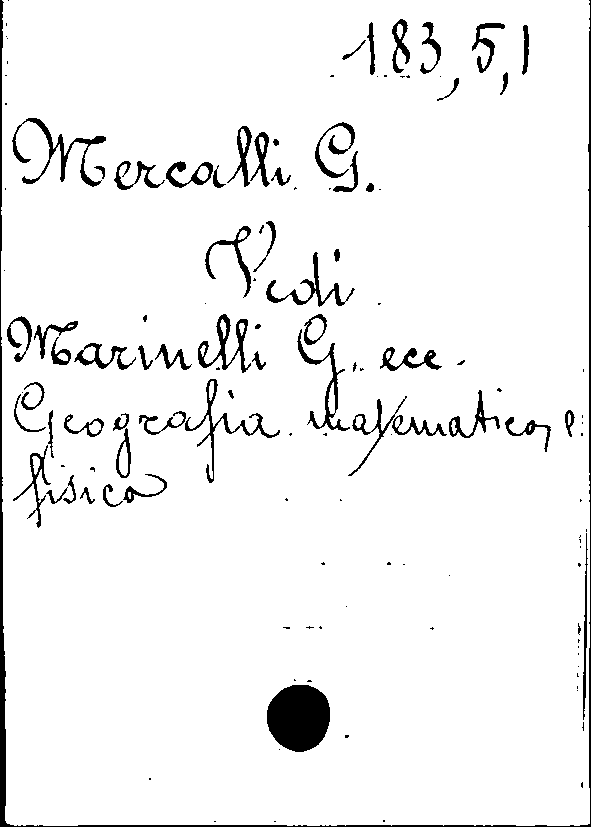 183,5,1
Mercalli G.
Vedi
Marinelli G. ecc.
Geografia matematica, e
fisica